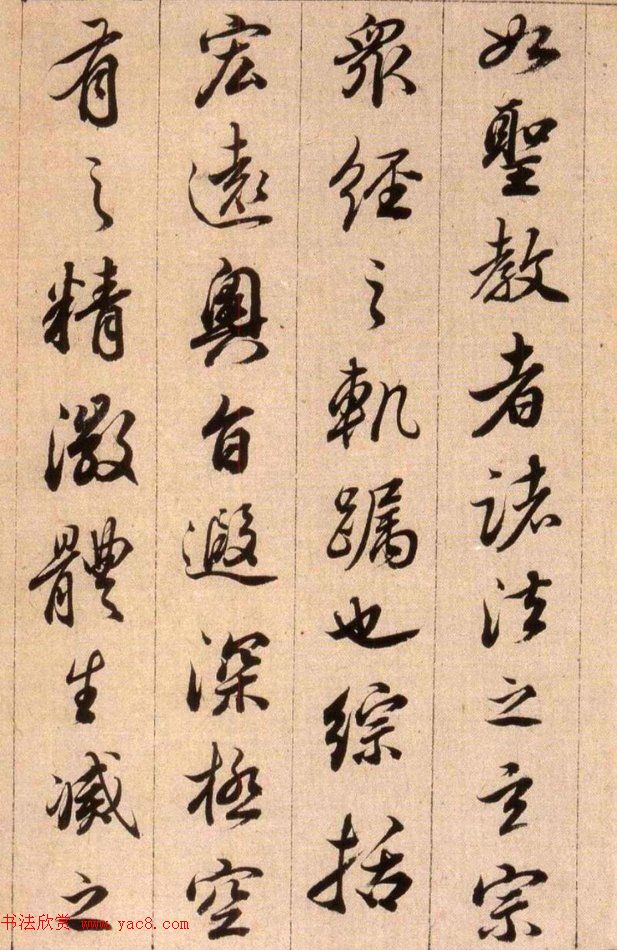 如聖教者諸法之玄宗
眾經之軌躅也綜括
宏遠奧旨遐深極空
有之精微體生滅之
书法欣赏 www.yac8.com